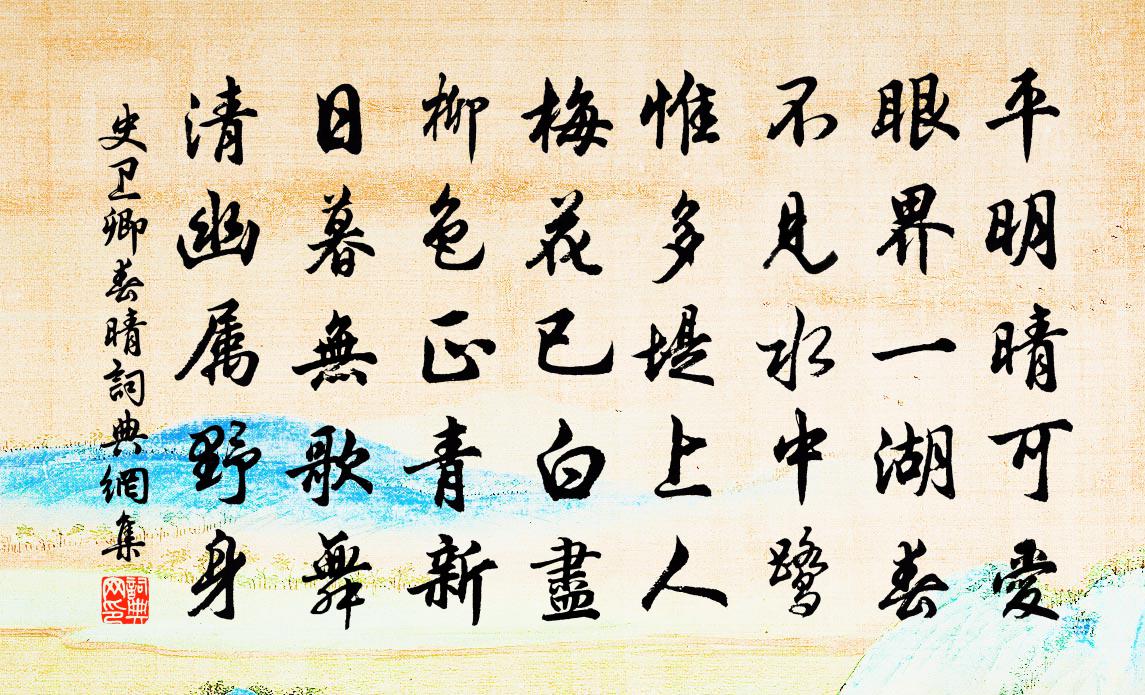 平明晴可愛
眼界一湖春
不見水中鷺
惟多堤上人
梅花已白盡
柳色正青新
日暮無歌舞
清幽属野身
史卫卿春晴詞典網集
詞典网印